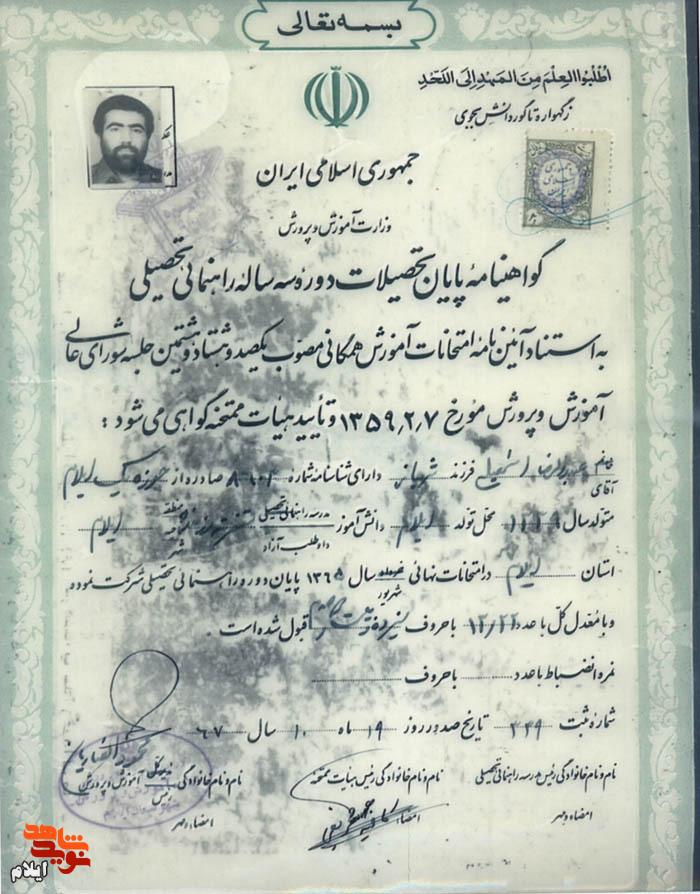 بسمه تعالی
اطلبوا العلم من المهد الی اللحد
ز گهواره تا گور دانش بجوی
جمهوری اسلامی ایران
وزارت آموزش و پرورش
گواهینامهٔ پایان تحصیلات دورهٔ سه سالهٔ راهنمائی تحصیلی
به استناد آئین نامهٔ امتحانات آموزش همگانی مصوب یکصد و هشتاد و هشتمین جلسه شورای عالی
آموزش و پرورش مورخ ۱۳۵۹٫۲٫۷ و تأیید هیأت ممتحنه گواهی می شود :
آقای عبدالرضا فرزند دارای شناسنامه شماره صادره از حوزه ایلام
متولد سال محل تولد ایلام دانش آموز مدرسه راهنمائی تحصیلی داوطلب آزاد منطقه شهر ایلام
استان ایلام در امتحانات نهائی شهریور سال ۱۳۶۵ پایان دوره راهنمائی تحصیلی شرکت نموده
و با معدل کل با عدد ۱۳/۲۲ با حروف قبول شده است .
نمره انضباط با عدد با حروف
شماره ثبت ۳۳۹ تاریخ صدور روز ۱۹ ماه ۱۰ سال ۶۷
نام و نام خانوادگی رئیس مدرسه راهنمائی تحصیلی
امضاء و مهر
نام و نام خانوادگی رئیس هیأت ممتحنه
امضاء
نام و نام خانوادگی مدیر کل رئیس آموزش و پرورش
امضاء و مهر
نوید شاهد
ایلام